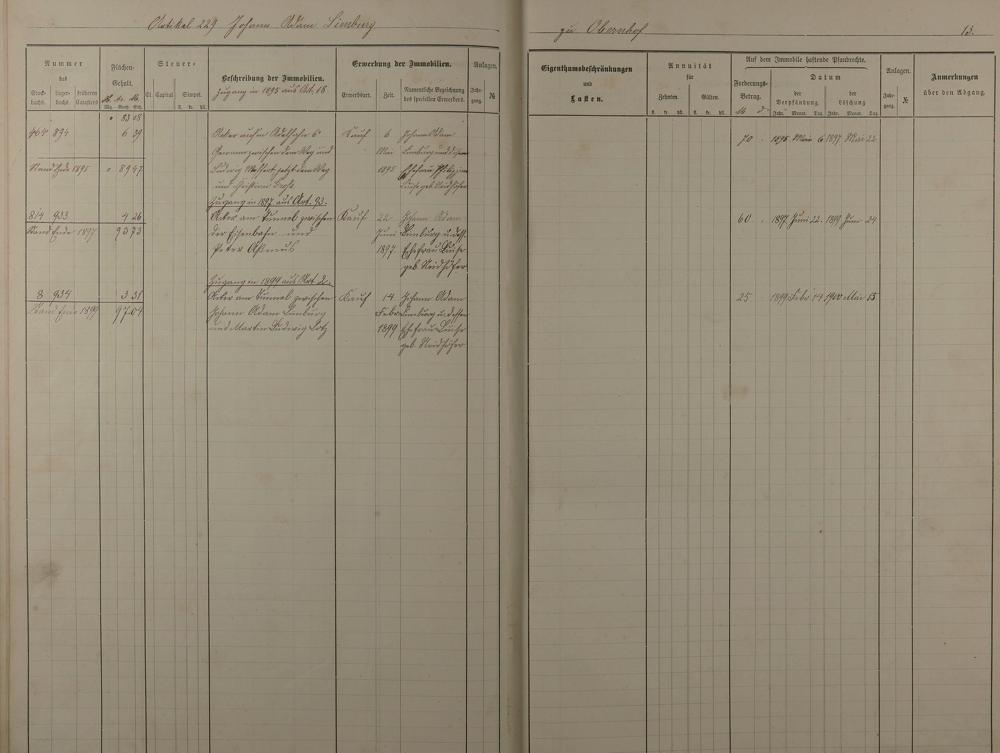 Artikel 229 Johann Adam Limburg
zu Obernhof
13.
Nummer
des
Stockbuchs.
Lagerbuchs.
früheren Catasters
Flächen-Gehalt.
Mg. Rth. Sch.
Steuer-
Cl. Capital.
Simpel.
fl. kr. hl.
Beschreibung der Immobilien.
Zugang in 1895 aus Art. 18
Erwerbung der Immobilien.
Erwerbsart.
Zeit.
Namentliche Bezeichnung
des speciellen Erwerbers.
Anlagen.
Jahrgang.
№
Eigenthumsbeschränkungen
und
Lasten.
Annuität
für
Zehnten.
Gülten.
fl. kr. hl.
fl. kr. hl.
Auf dem Immobile haftende Pfandrechte.
Forderungs-Betrag.
Datum
der
Verpfändung.
der
Löschung
Jahr. Monat. Tag
Jahr. Monat. Tag
Anlagen.
Jahrgang.
№
Anmerkungen
über den Abgang.
83 18
464 894
6 29
Acker auf'm
Gewann zwischen dem Weg und
Ludwig jetzt dem Weg
und Christian
Kauf
6
Mai
1895
Johann Adam
Limburg und dessen
Ehefrau
Luise geb. Neidhöfer
70
1895 Mai 6 1897 Mai 22
Stand Ende 1895
89 47
Zugang in 1897 aus Art. 93.
814 933
4 26
Acker am Tunnel zwischen
der Eisenbahn und
Peter Aßmus
Kauf
22
Juni
1897
Johann Adam
Limburg u. dess.
Ehefrau Luise
geb. Neidhöfer
60
1897 Juni 22 1899 Juni 24
Stand Ende 1897
93 73
Zugang in 1899 aus Art. 2.
8 934
3 31
Acker am Tunnel zwischen
Johann Adam Limburg
und Martin Ludwig Lotz
Kauf
14
Febr
1899
Johann Adam
Limburg u. dessen
Ehefrau Luise
geb. Neidhöfer
25
1899 Febr 14 1900 Mai 15
Stand Ende 1899
97 04